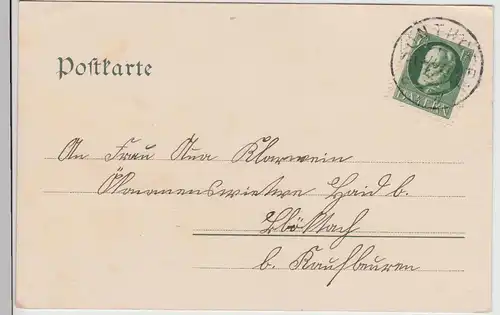 Postkarte
BAYERN
An Frau Ana Klarwein
Ökonomenswitwe Haid b.
b. Kaufbeuren